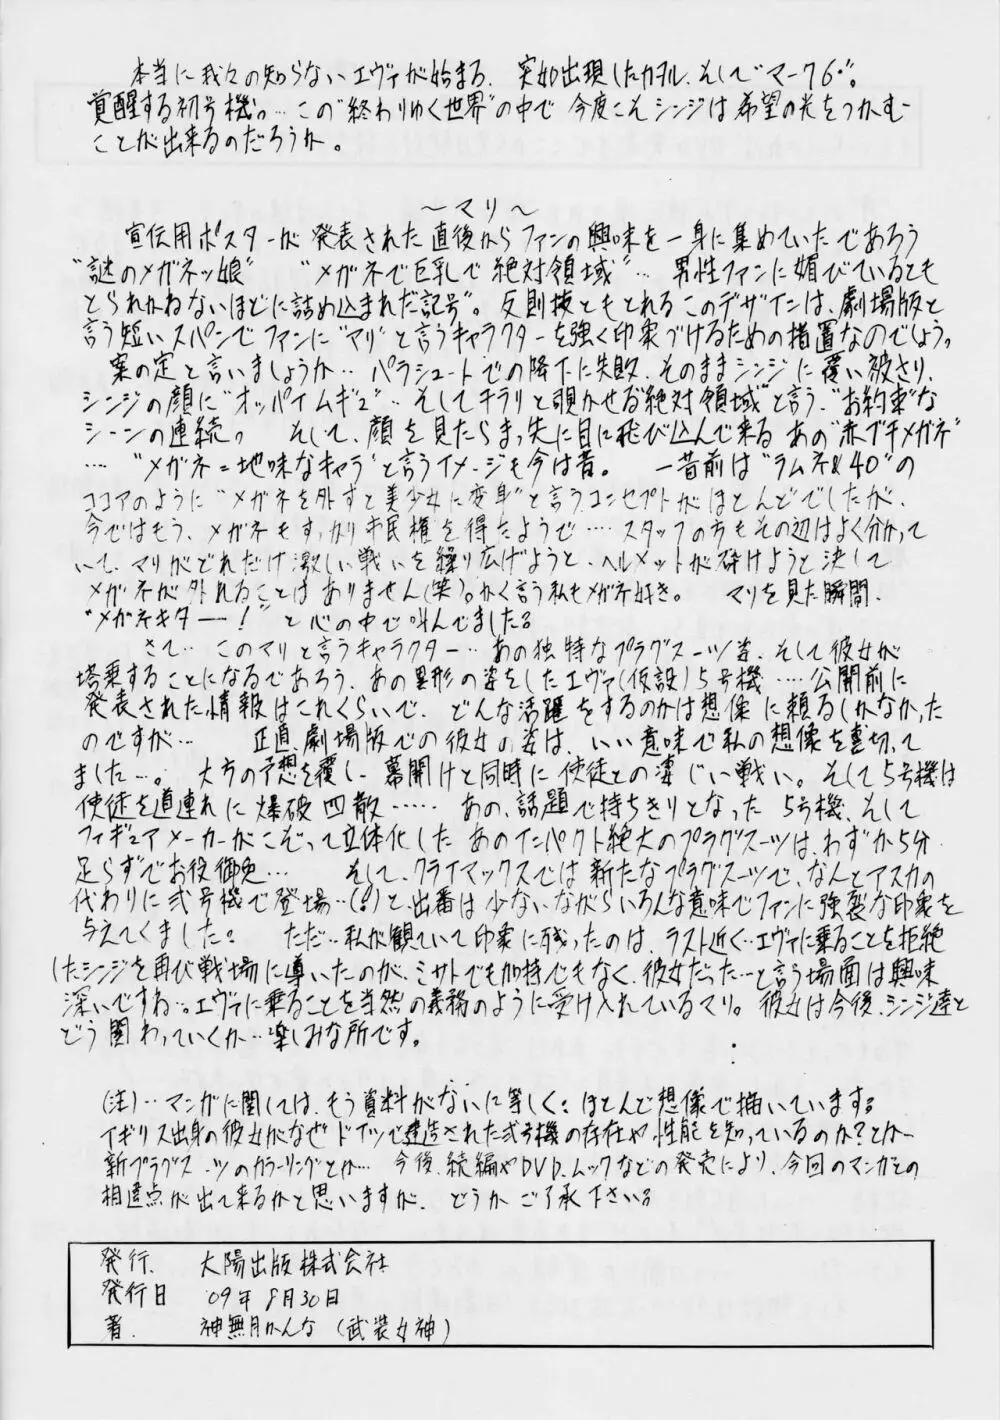 本当に我々の知らないエヴァが始まる。突如出現したカヲル、そして"マーク6"。
覚醒する初号機。…この"終わりゆく世界"の中で今度こそシンジは希望の光をつかむ
ことが出来るのだろうか。
～マリ～
宣伝用ポスターが発表された直後からファンの興味を一身に集めていたであろう
"謎のメガネッ娘" "メガネで巨乳で絶対領域"… 男性ファンに媚びているとも
とられかねないほどに詰め込まれた"記号"。反則技ともとれるこのデザインは、劇場版と
言う短いスパンでファンに"マリ"と言うキャラクターを強く印象づけるための措置なのでしょう。
案の定と言いましょうか… パラシュートでの降下に失敗、そのままシンジに覆い被さり、
シンジの顔に"オッパイムギュ"… そしてチラリと覗かせる"絶対領域"と言う、"お約束"な
シーンの連続。 そして、顔を見たらまっ先に目に飛び込んで来るあの"赤ブチメガネ"
… "メガネ=地味なキャラ"と言うイメージも今は昔。 一昔前は"ラムネ&40"の
ココアのように"メガネを外すと美少女に変身"と言うコンセプトがほとんどでしたが、
今ではもう、メガネもすっかり市民権を得たようで…. スタッフの方もその辺はよく分かって
いて、マリがどれだけ激しい戦いを繰り広げようと、ヘルメットが砕けようと決して
メガネが外れることはありません(笑)。かく言う私もメガネ好き。 マリを見た瞬間、
"メガネキター!"と心の中で叫んでました。
さて… このマリと言うキャラクター… あの独特なプラグスーツ姿、そして彼女が
搭乗することになるであろう、あの異形の姿をしたエヴァ(仮設)5号機….公開前に
発表された情報はこれくらいで、どんな活躍をするのかは想像に頼るしかなかった
のですが… 正直、劇場版での彼女の姿は、いい意味で私の想像を裏切って
ました…。大方の予想を覆し、幕開けと同時に使徒との凄じい戦い。そして5号機は
使徒を道連れに爆破四散…… あの、話題で持ちきりとなった5号機、そして
フィギュアメーカーがこぞって立体化したあのインパクト絶大のプラグスーツは、わずか5分
足らずでお役御免… そして、クライマックスでは新たなプラグスーツで、なんとアスカの
代わりに弐号機で登場…(!)と、出番は少ないながらいろんな意味でファンに強裂な印象を
与えてくました。 ただ…私が観ていて印象に残ったのは、ラスト近く…エヴァに乗ることを拒絶
したシンジを再び戦場に導いたのが、ミサトでも加持でもなく、彼女だった…と言う場面は興味
深いですね…。エヴァに乗ることを当然の義務のように受け入れているマリ。彼女は今後、シンジ達と
どう関わっていくか…楽しみな所です。
(注)… マンガに関しては、もう資料がないに等しく、ほとんど想像で描いています。
イギリス出身の彼女がなぜドイツで建造された弐号機の存在や性能を知っているのか?とか…
新プラグスーツのカラーリングとか… 今後、続編やDVD、ムックなどの発売により、今回のマンガとの
相違点が出て来るかと思いますが、どうかご了承下さい。
発行. 太陽出版株式会社
発行日 '09年8月30日
著. 神無月かんな (武装女神)